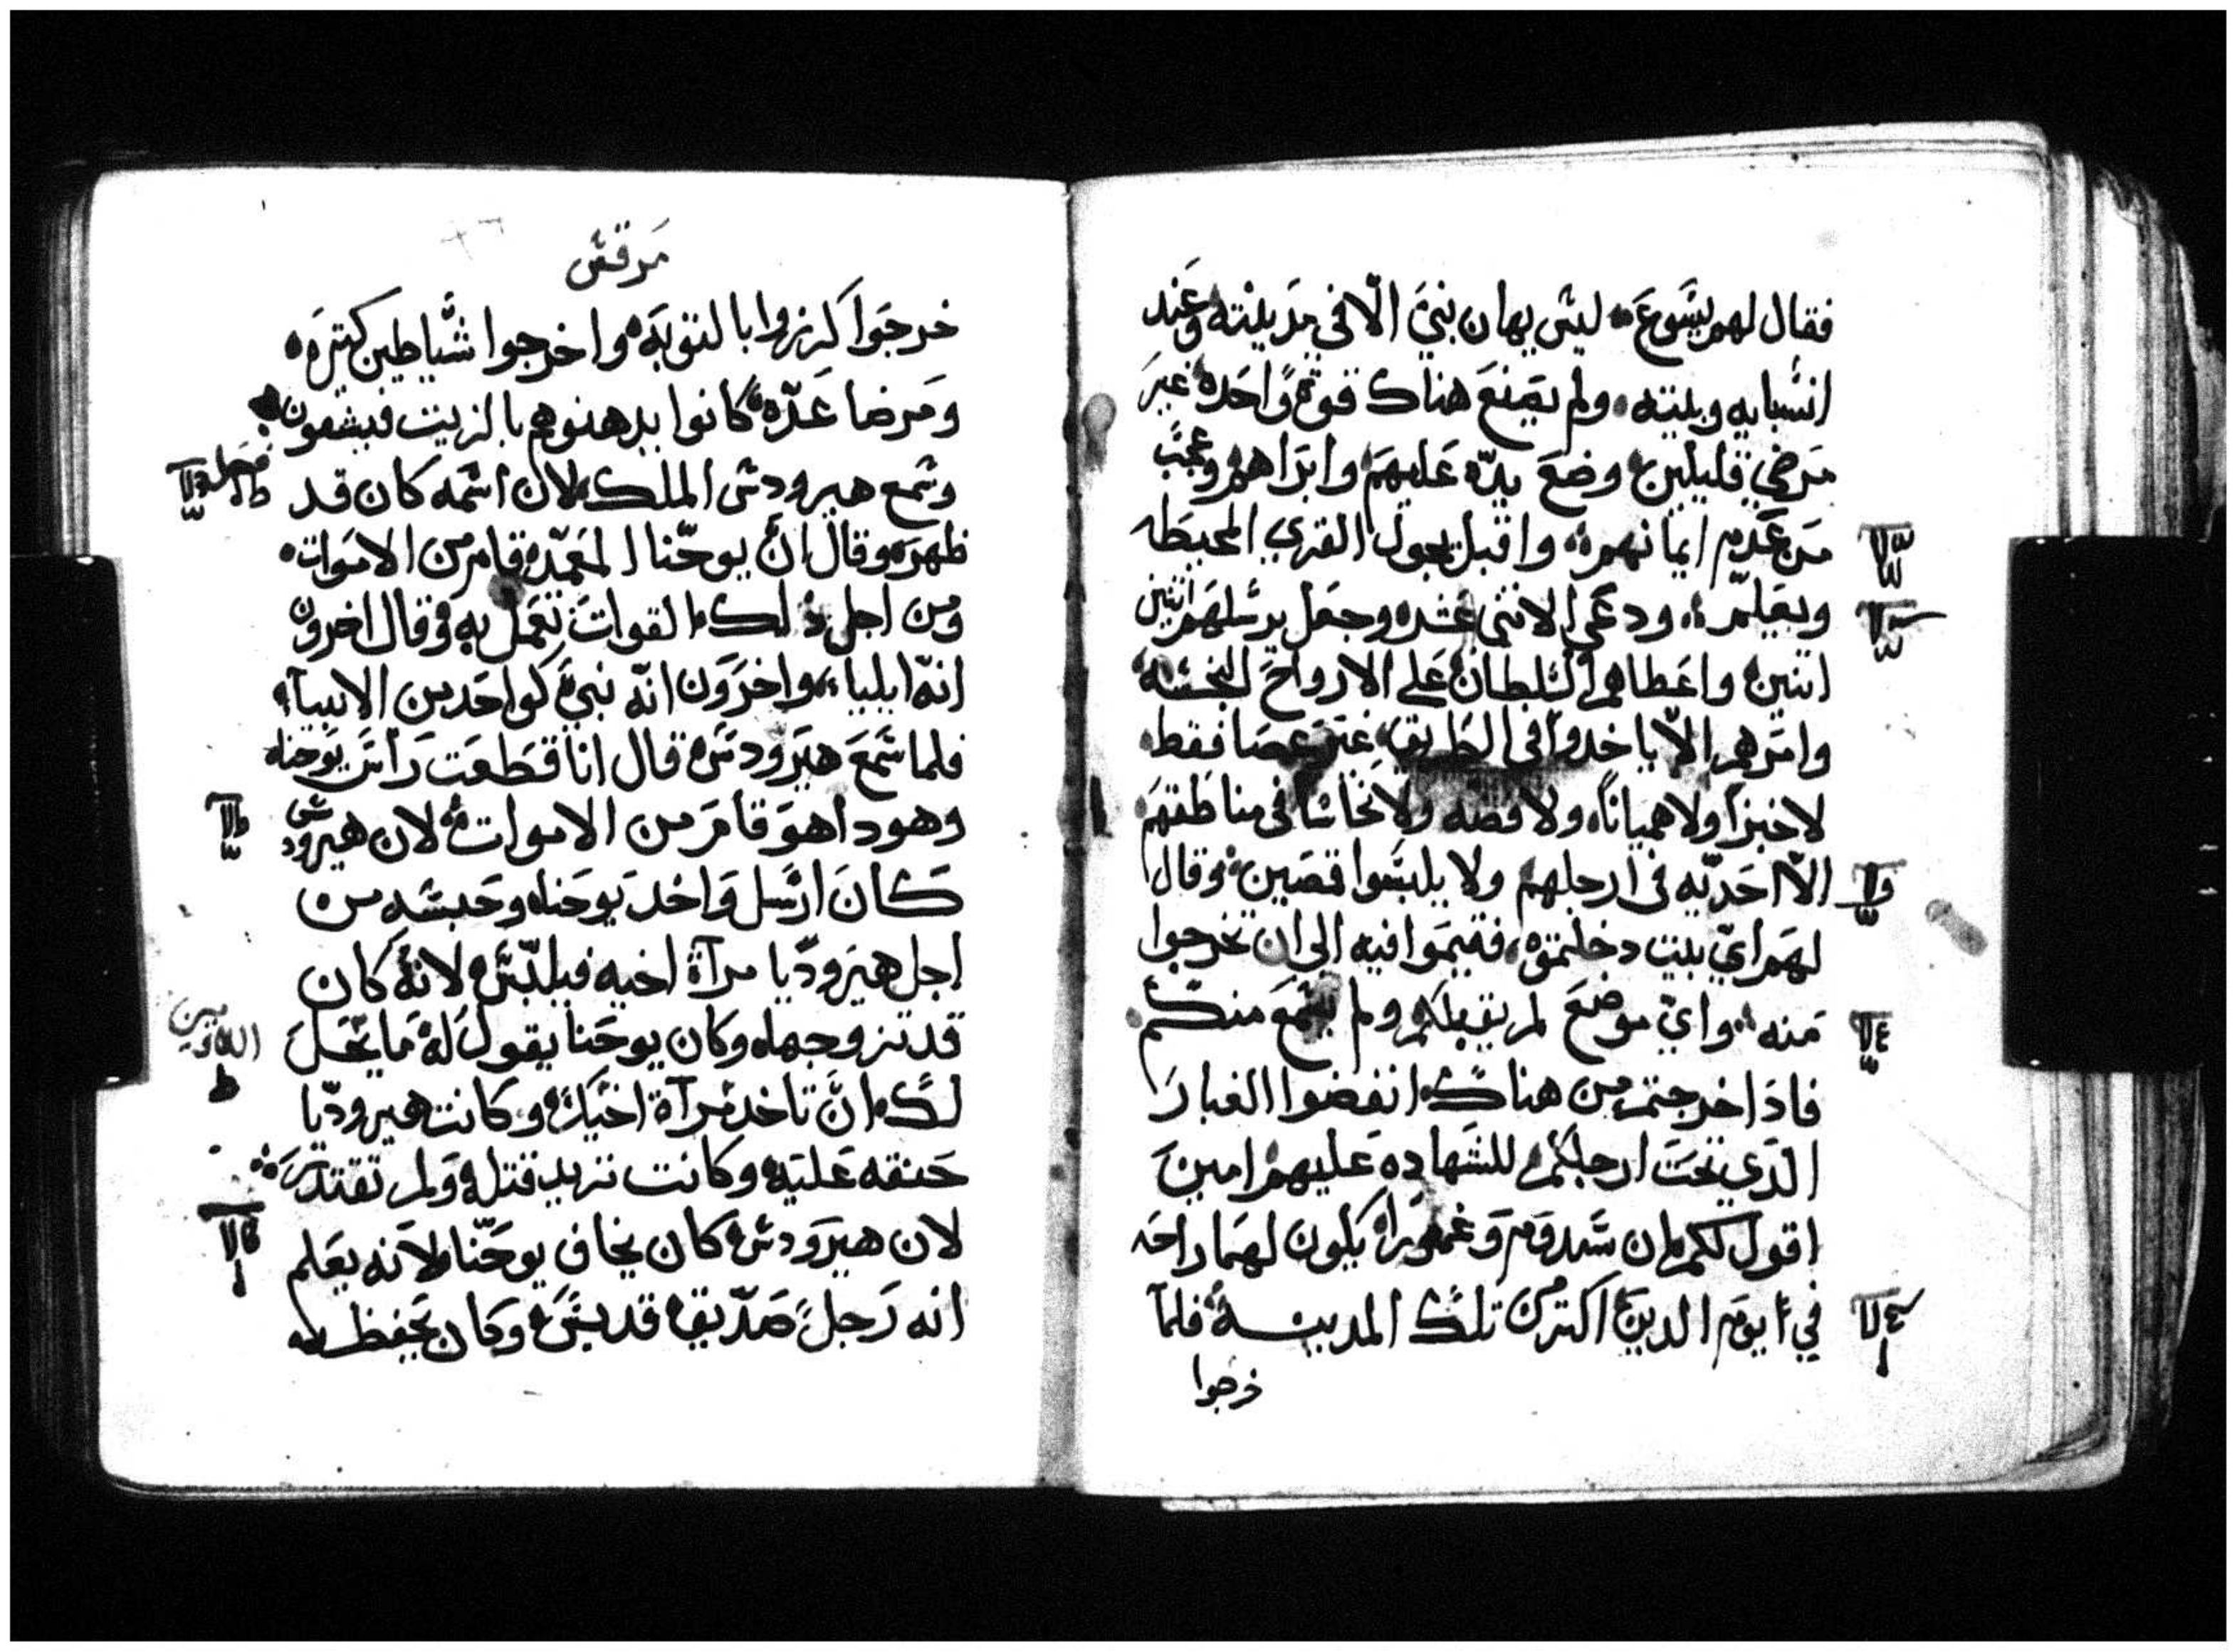 فقال لهم يسوع ليس يهان نبي الّا في مدينته وعند
انسبايه وبيته ولم يصنع هناك قوة واحده غير
مرضي قليلين وضع يده عليهم وابراهم وعجب
من عدم ايمانهم واقبل يجول القري المحيطه
ويعلّم ودعي الاثني عشر وجعل يرسلهم اثنين
اثنين واعطاهم السلطان علي الارواح النجسه
وامرهم الّا ياخدوا في الطريق غير عصا فقط
لا خبزاً ولا همياناً ولا فضه ولا نحاسا في مناطقهم
الّا احديّه في ارجلهم ولا يلبسوا قمصين وقال
لهم ايّ بيت دخلتموه فقيموا فيه الي ان تخرجوا
منه وايّ موضع لم يقبلكم ولم يسمع منكم
فادا خرجتم من هناك انفضوا الغبار
الدي تحت ارجلكم للشهاده عليهم امين
اقول لكم ان سدوم وغموراه يكون لهما راحه
في يوم الدين اكتر من تلك المدينه فلمآ
خرجوا
مرقس
خرجوا كرزوا بالتوبه واخرجوا شياطين كتيره
ومرضا عدّه كانوا يدهنوهم بالزيت فيشفون
وسمع هيرودس الملك لان اسمه كان قد
ظهر وقال انّ يوحّنا المعمّد قام من الاموات
ومن اجل دلك القوات تعمل به وقال اخرون
انّه ايليا واخرون انّه نبيّ كواحد من الانبيآء
فلما سمع هيرودس قال انا قطعت راس يوحنا
وهودا هو قام من الاموات لان هيرودس
كان ارسل واخد يوحنا وحبسه من
اجل هيروديّا مرآة اخيه فيلبّس لانّه كان
قد تزوجها وكان يوحنا يقول له ما يحّل
لك انّ تاخد مرآة اخيك وكانت هيروديّا
حنقه عليه وكانت تريد قتله ولم تقتدر
لان هيرودس كان يخاف يوحّنا لانه يعلم
انه رجل صدّيق قديس وكان يحفظه